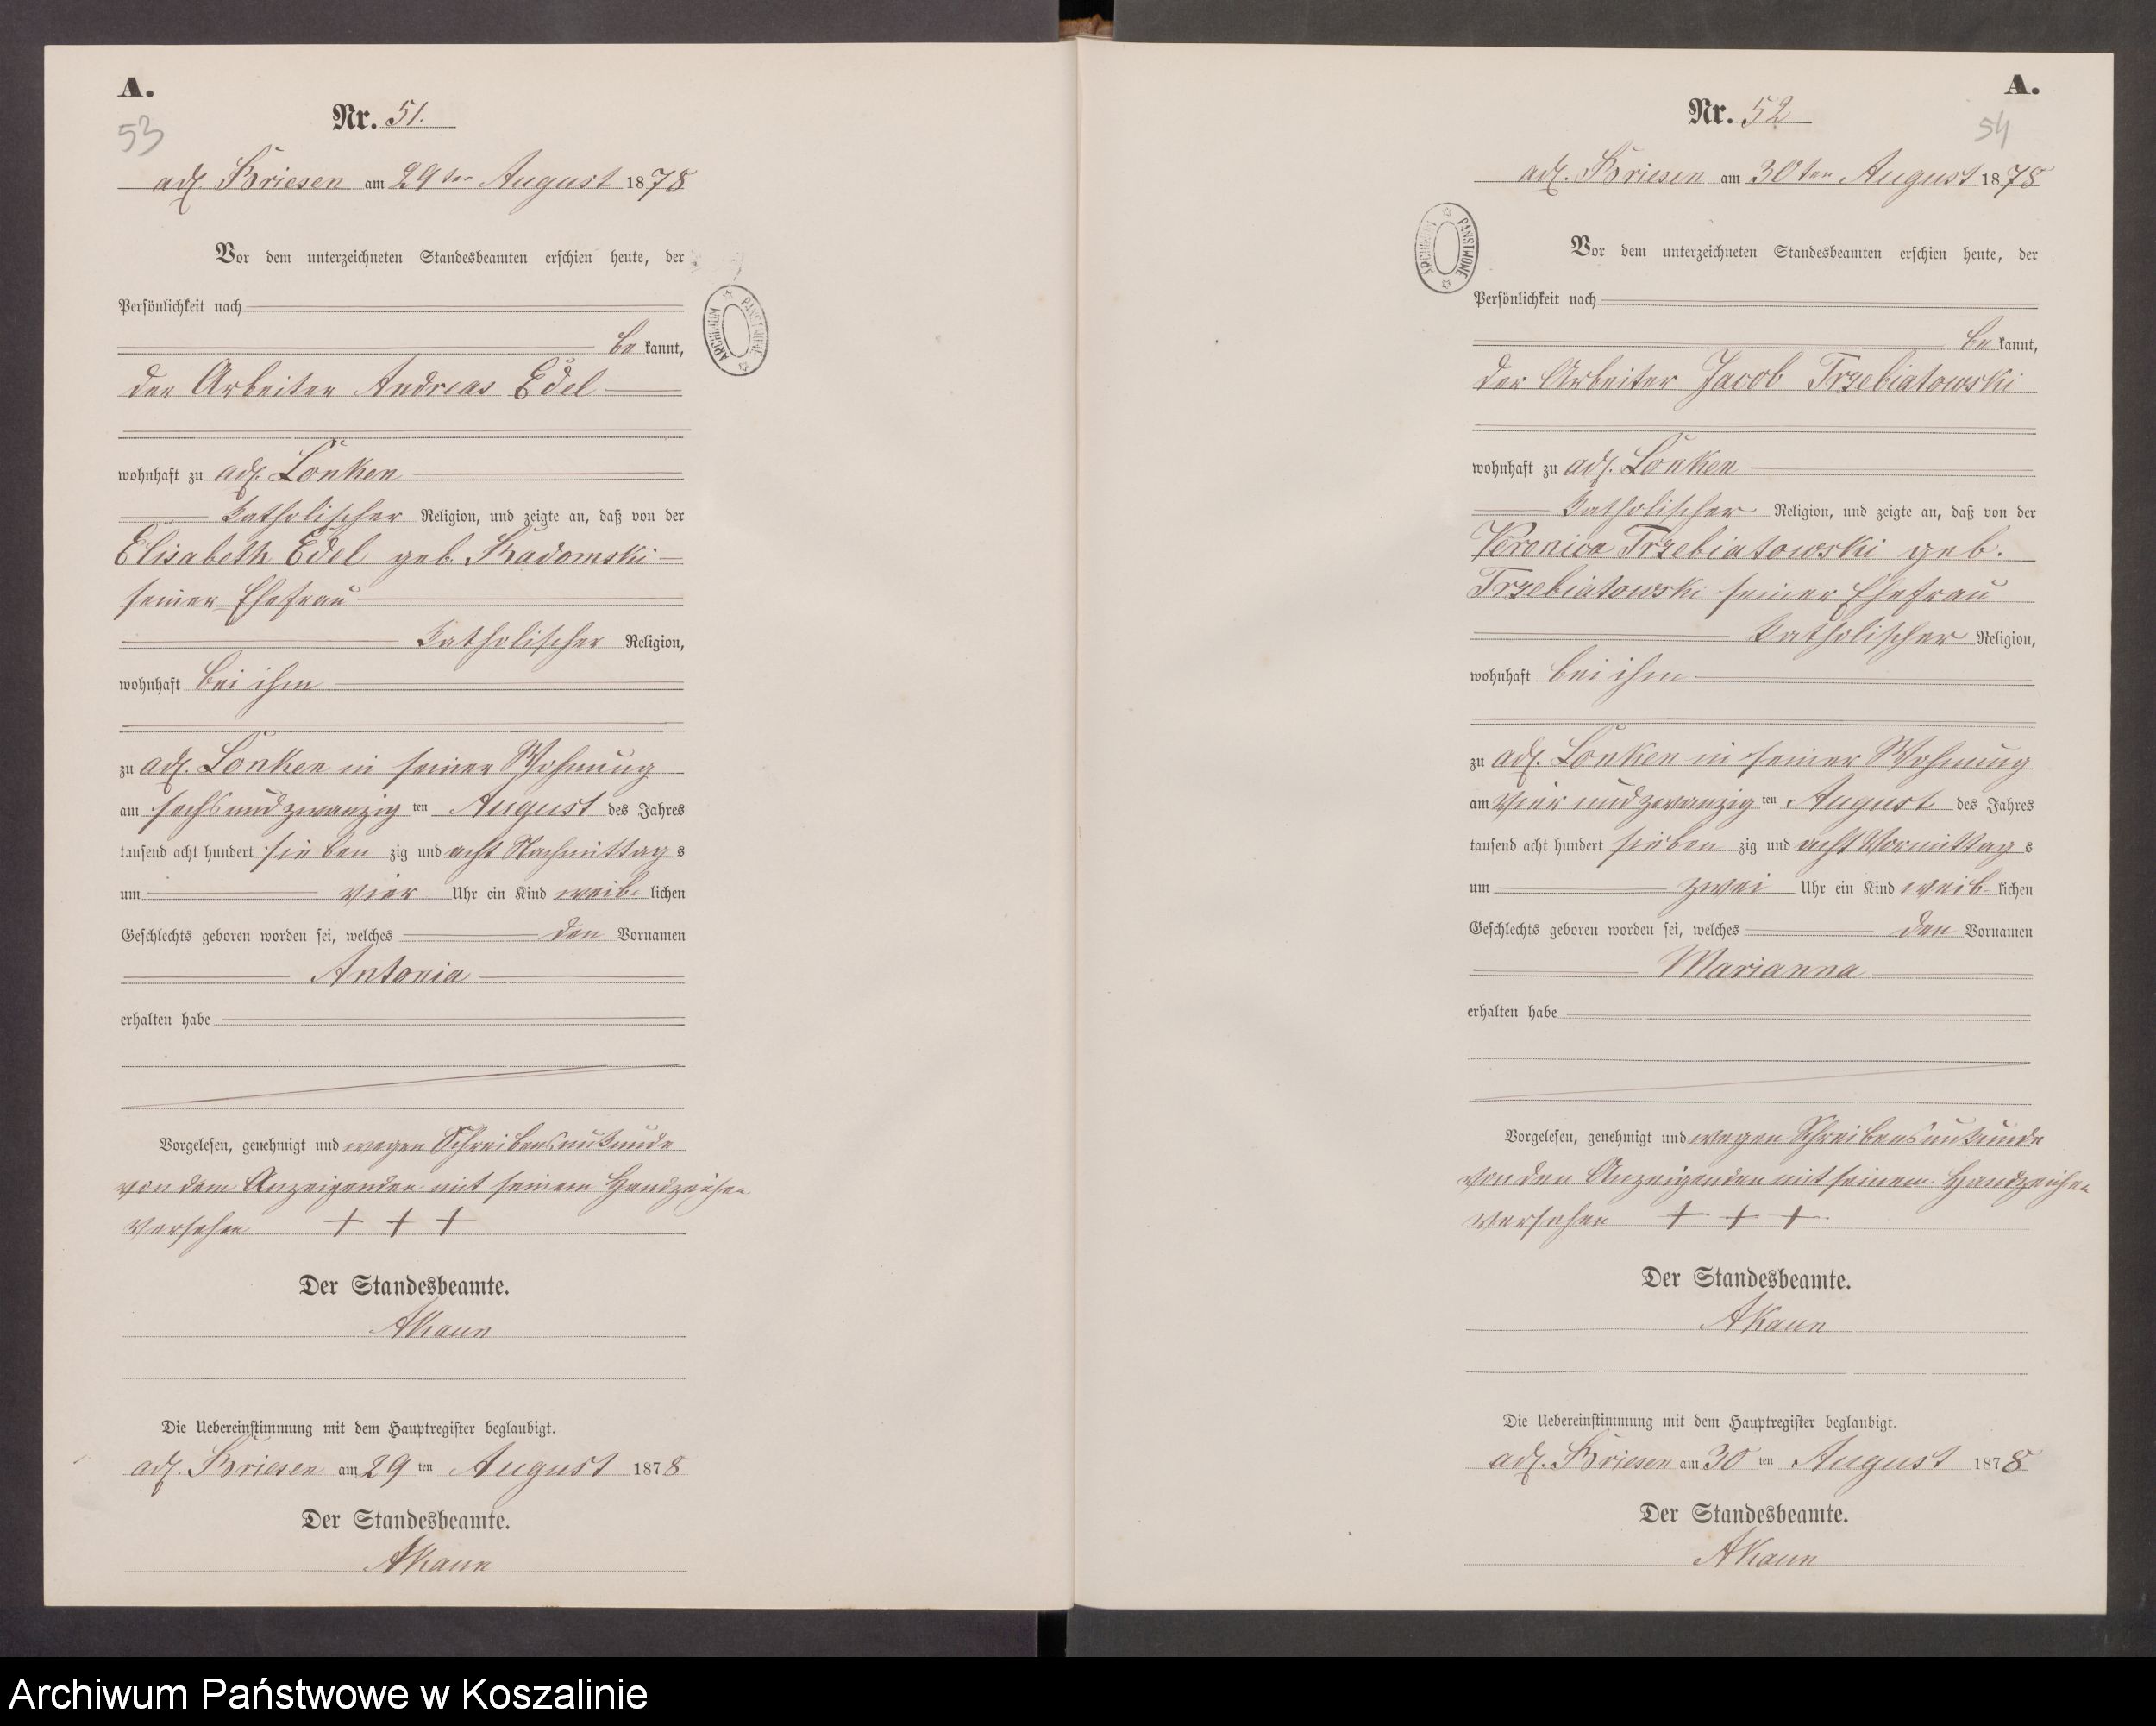 A.
53
Nr. 51.
adl. Briesen am 29ten August 1878
Vor dem unterzeichneten Standesbeamten erschien heute, der
Persönlichkeit nach
be kannt,
der Arbeiter Andreas Edel
wohnhaft zu adl. Lonken
katholischer Religion, und zeigte an, daß von der
Elisabeth Edel geb. Radomski
seiner Ehefrau
katholischer Religion,
wohnhaft bei ihm
zu adl. Lonken in seiner Wohnung
am sechsundzwanzig ten August des Jahres
tausend acht hundert sieben zig und acht Nachmittag s
um vier Uhr ein Kind weib- lichen
Geschlechts geboren worden sei, welches den Vornamen
Antonia
erhalten habe
Vorgelesen, genehmigt und wegen Schreibensunkunde
von dem Anzeigenden mit seinem Handzeichen
versehen + + +
Der Standesbeamte.
AKaun
Die Uebereinstimmung mit dem Hauptregister beglaubigt.
adl. Briesen am 29 ten August 1878
Der Standesbeamte.
AKaun
ARCHIWUM PAŃSTWOWE
A.
54
Nr. 52
adl. Briesen am 30ten August 1878
Vor dem unterzeichneten Standesbeamten erschien heute, der
Persönlichkeit nach
be kannt,
der Arbeiter Jacob Trzebiatowski
wohnhaft zu adl. Lonken
katholischer Religion, und zeigte an, daß von der
Veronica Trzebiatowski geb.
Trzebiatowski seiner Ehefrau
katholischer Religion,
wohnhaft bei ihm
zu adl. Lonken in seiner Wohnung
am vier und zwanzig ten August des Jahres
tausend acht hundert sieben zig und acht Vormittag s
um zwei Uhr ein Kind weib- lichen
Geschlechts geboren worden sei, welches den Vornamen
Marianna
erhalten habe
Vorgelesen, genehmigt und wegen Schreibensunkunde
von den Anzeigenden mit seinem Handzeichen
versehen + + +
Der Standesbeamte.
AKaun
Die Uebereinstimmung mit dem Hauptregister beglaubigt.
adl. Briesen am 30 ten August 1878
Der Standesbeamte.
AKaun
ARCHIWUM PAŃSTWOWE
Archiwum Państwowe w Koszalinie